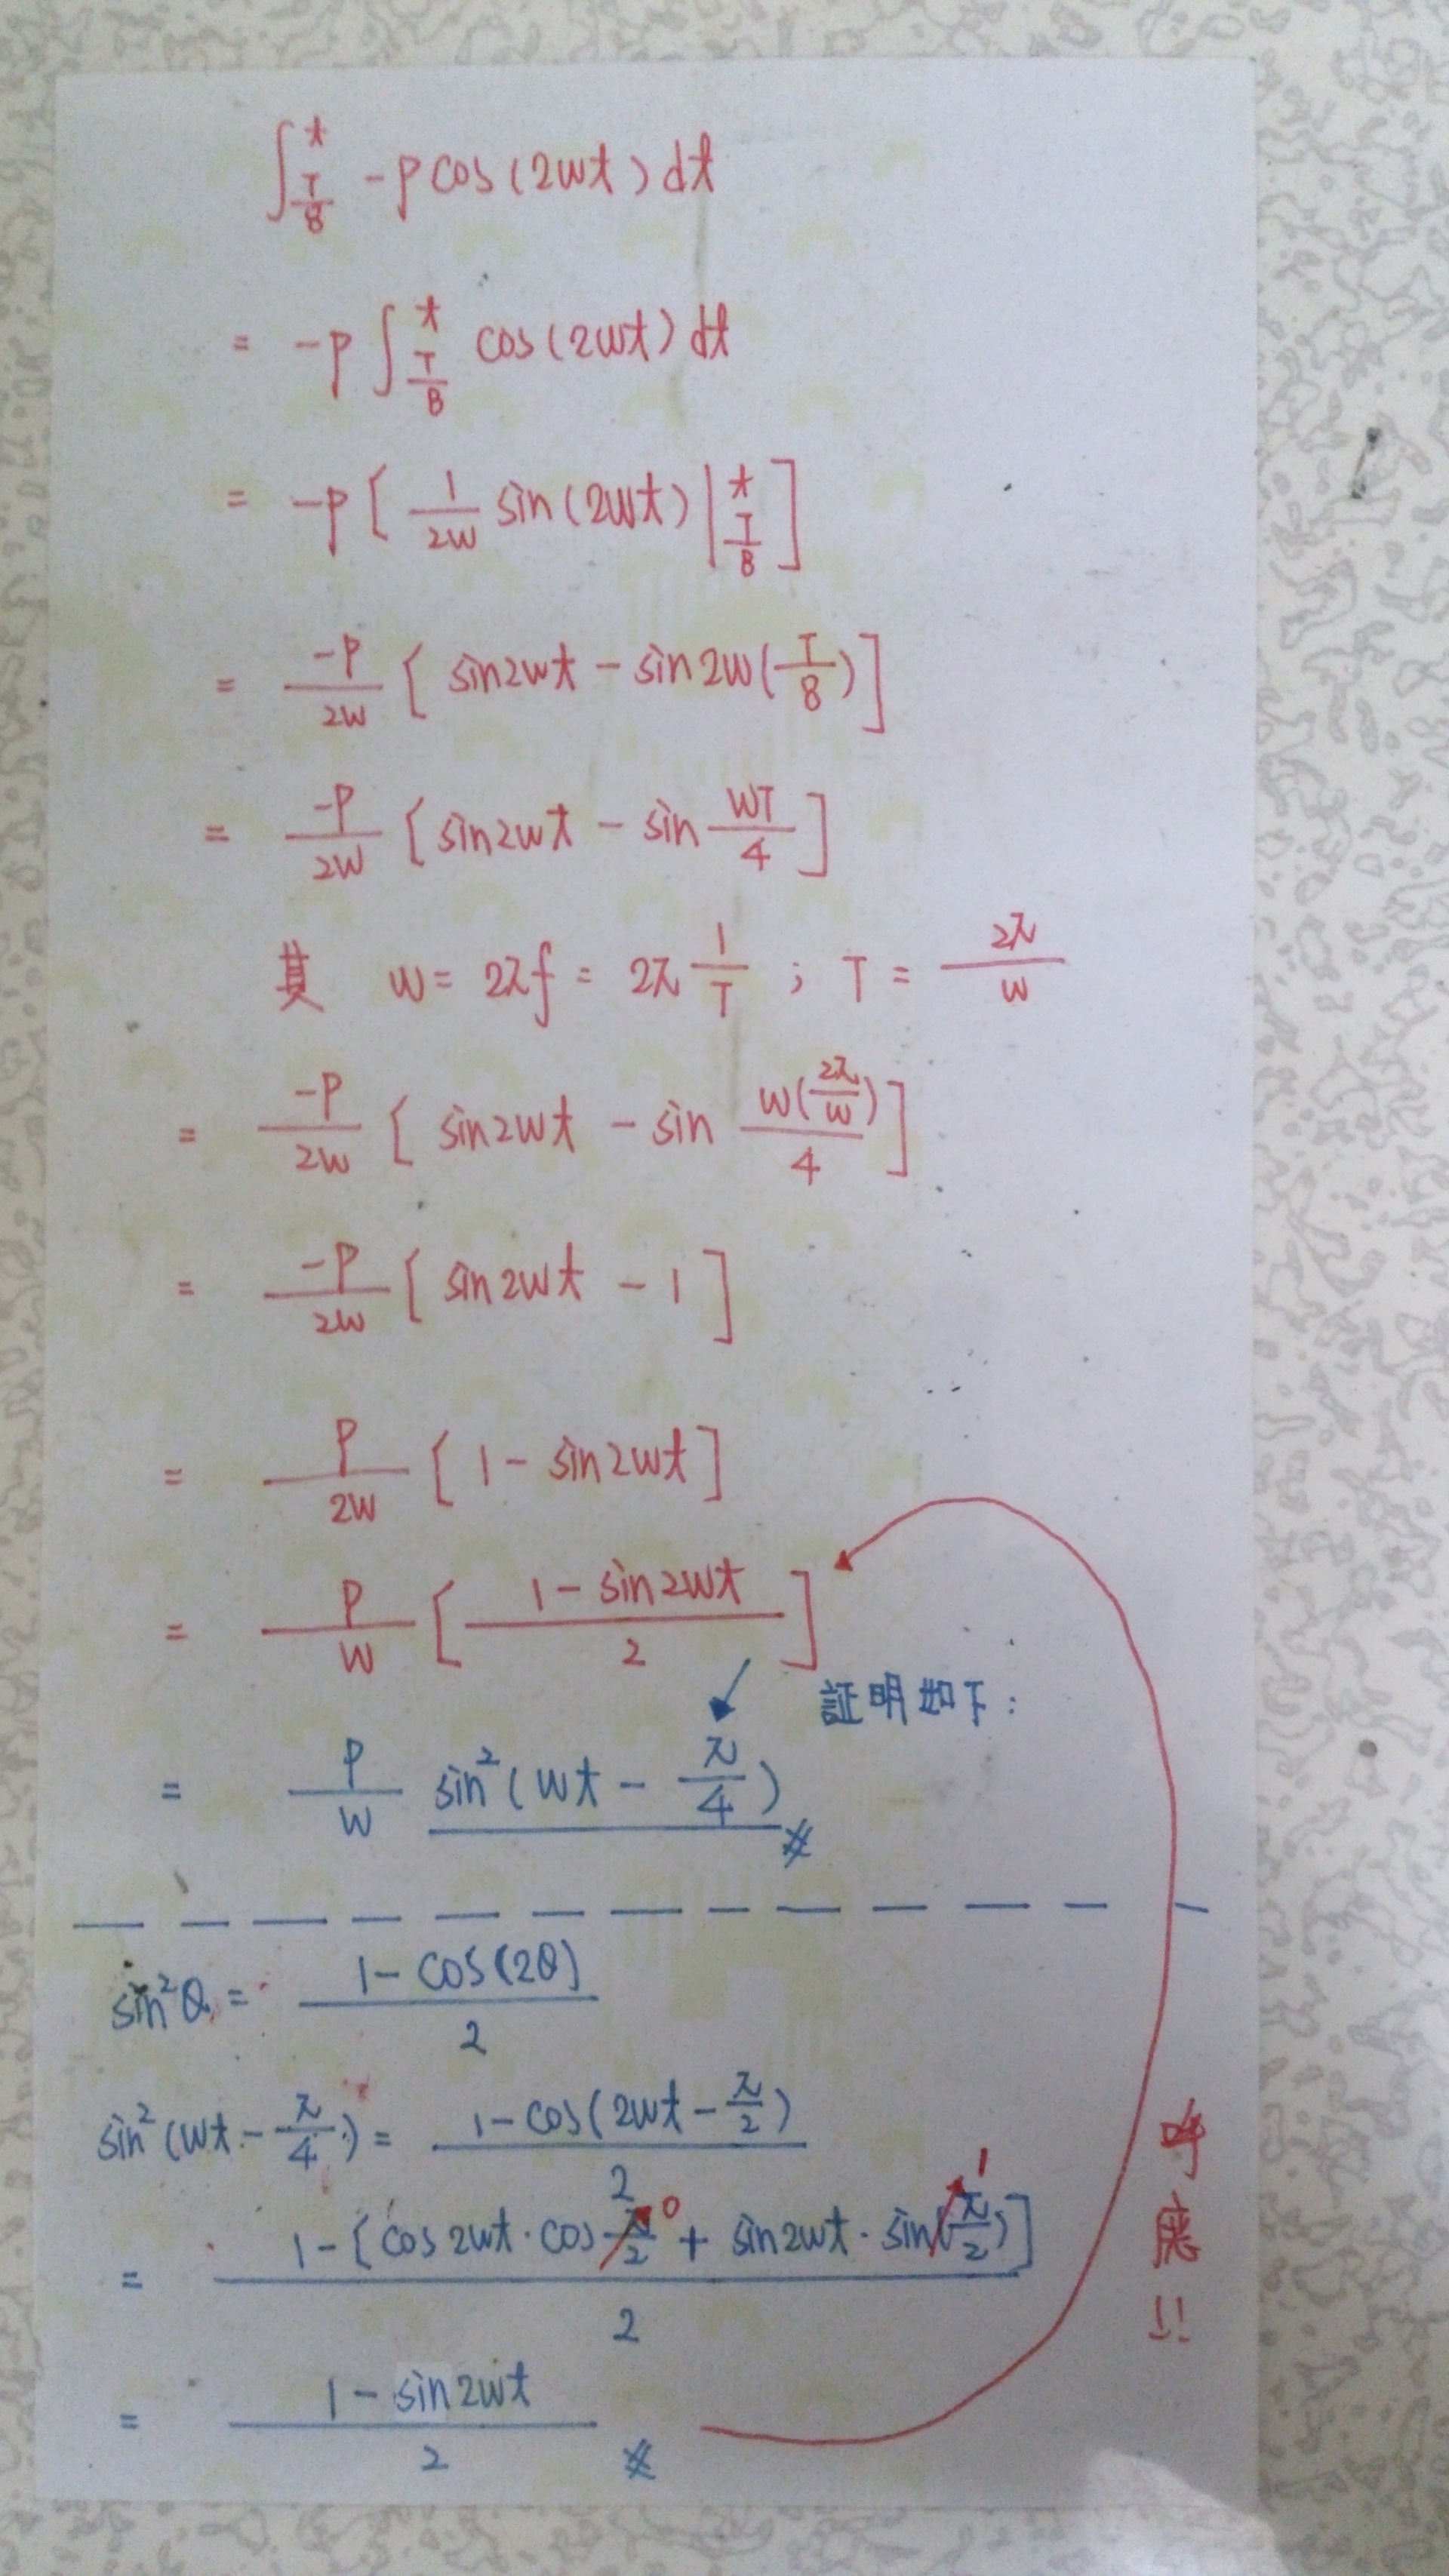 ∫_{T/8}^{t} -p cos(2wt) dt
= -p ∫_{T/8}^{t} cos(2wt) dt
= -p [ 1/2w sin(2wt) |_{T/8}^{t} ]
= -p/2w [ sin2wt - sin2w(T/8) ]
= -p/2w [ sin2wt - sin wT/4 ]
其 w = 2πf = 2π 1/T ; T = 2π/w
= -p/2w [ sin2wt - sin w(2π/w)/4 ]
= -p/2w [ sin2wt - 1 ]
= p/2w [ 1 - sin2wt ]
= p/w [ (1 - sin2wt)/2 ]
証明如下:
= p/w sin²(wt - π/4) #
sin²θ = (1 - cos(2θ))/2
sin²(wt - π/4) = (1 - cos(2wt - π/2))/2
= (1 - [cos2wt · cos π/2 + sin2wt · sin(π/2)])/2
0
1
= (1 - sin2wt)/2 #
呼應!!